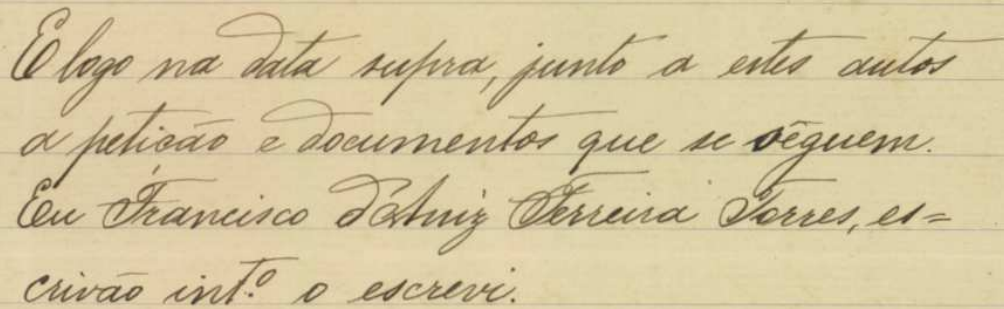 E logo na data supra, junto a estes autos
a petição e documentos que se séguem.
Eu Francisco d'Athniz Ferreira Torres, es=
crivão int.º o escrevi.